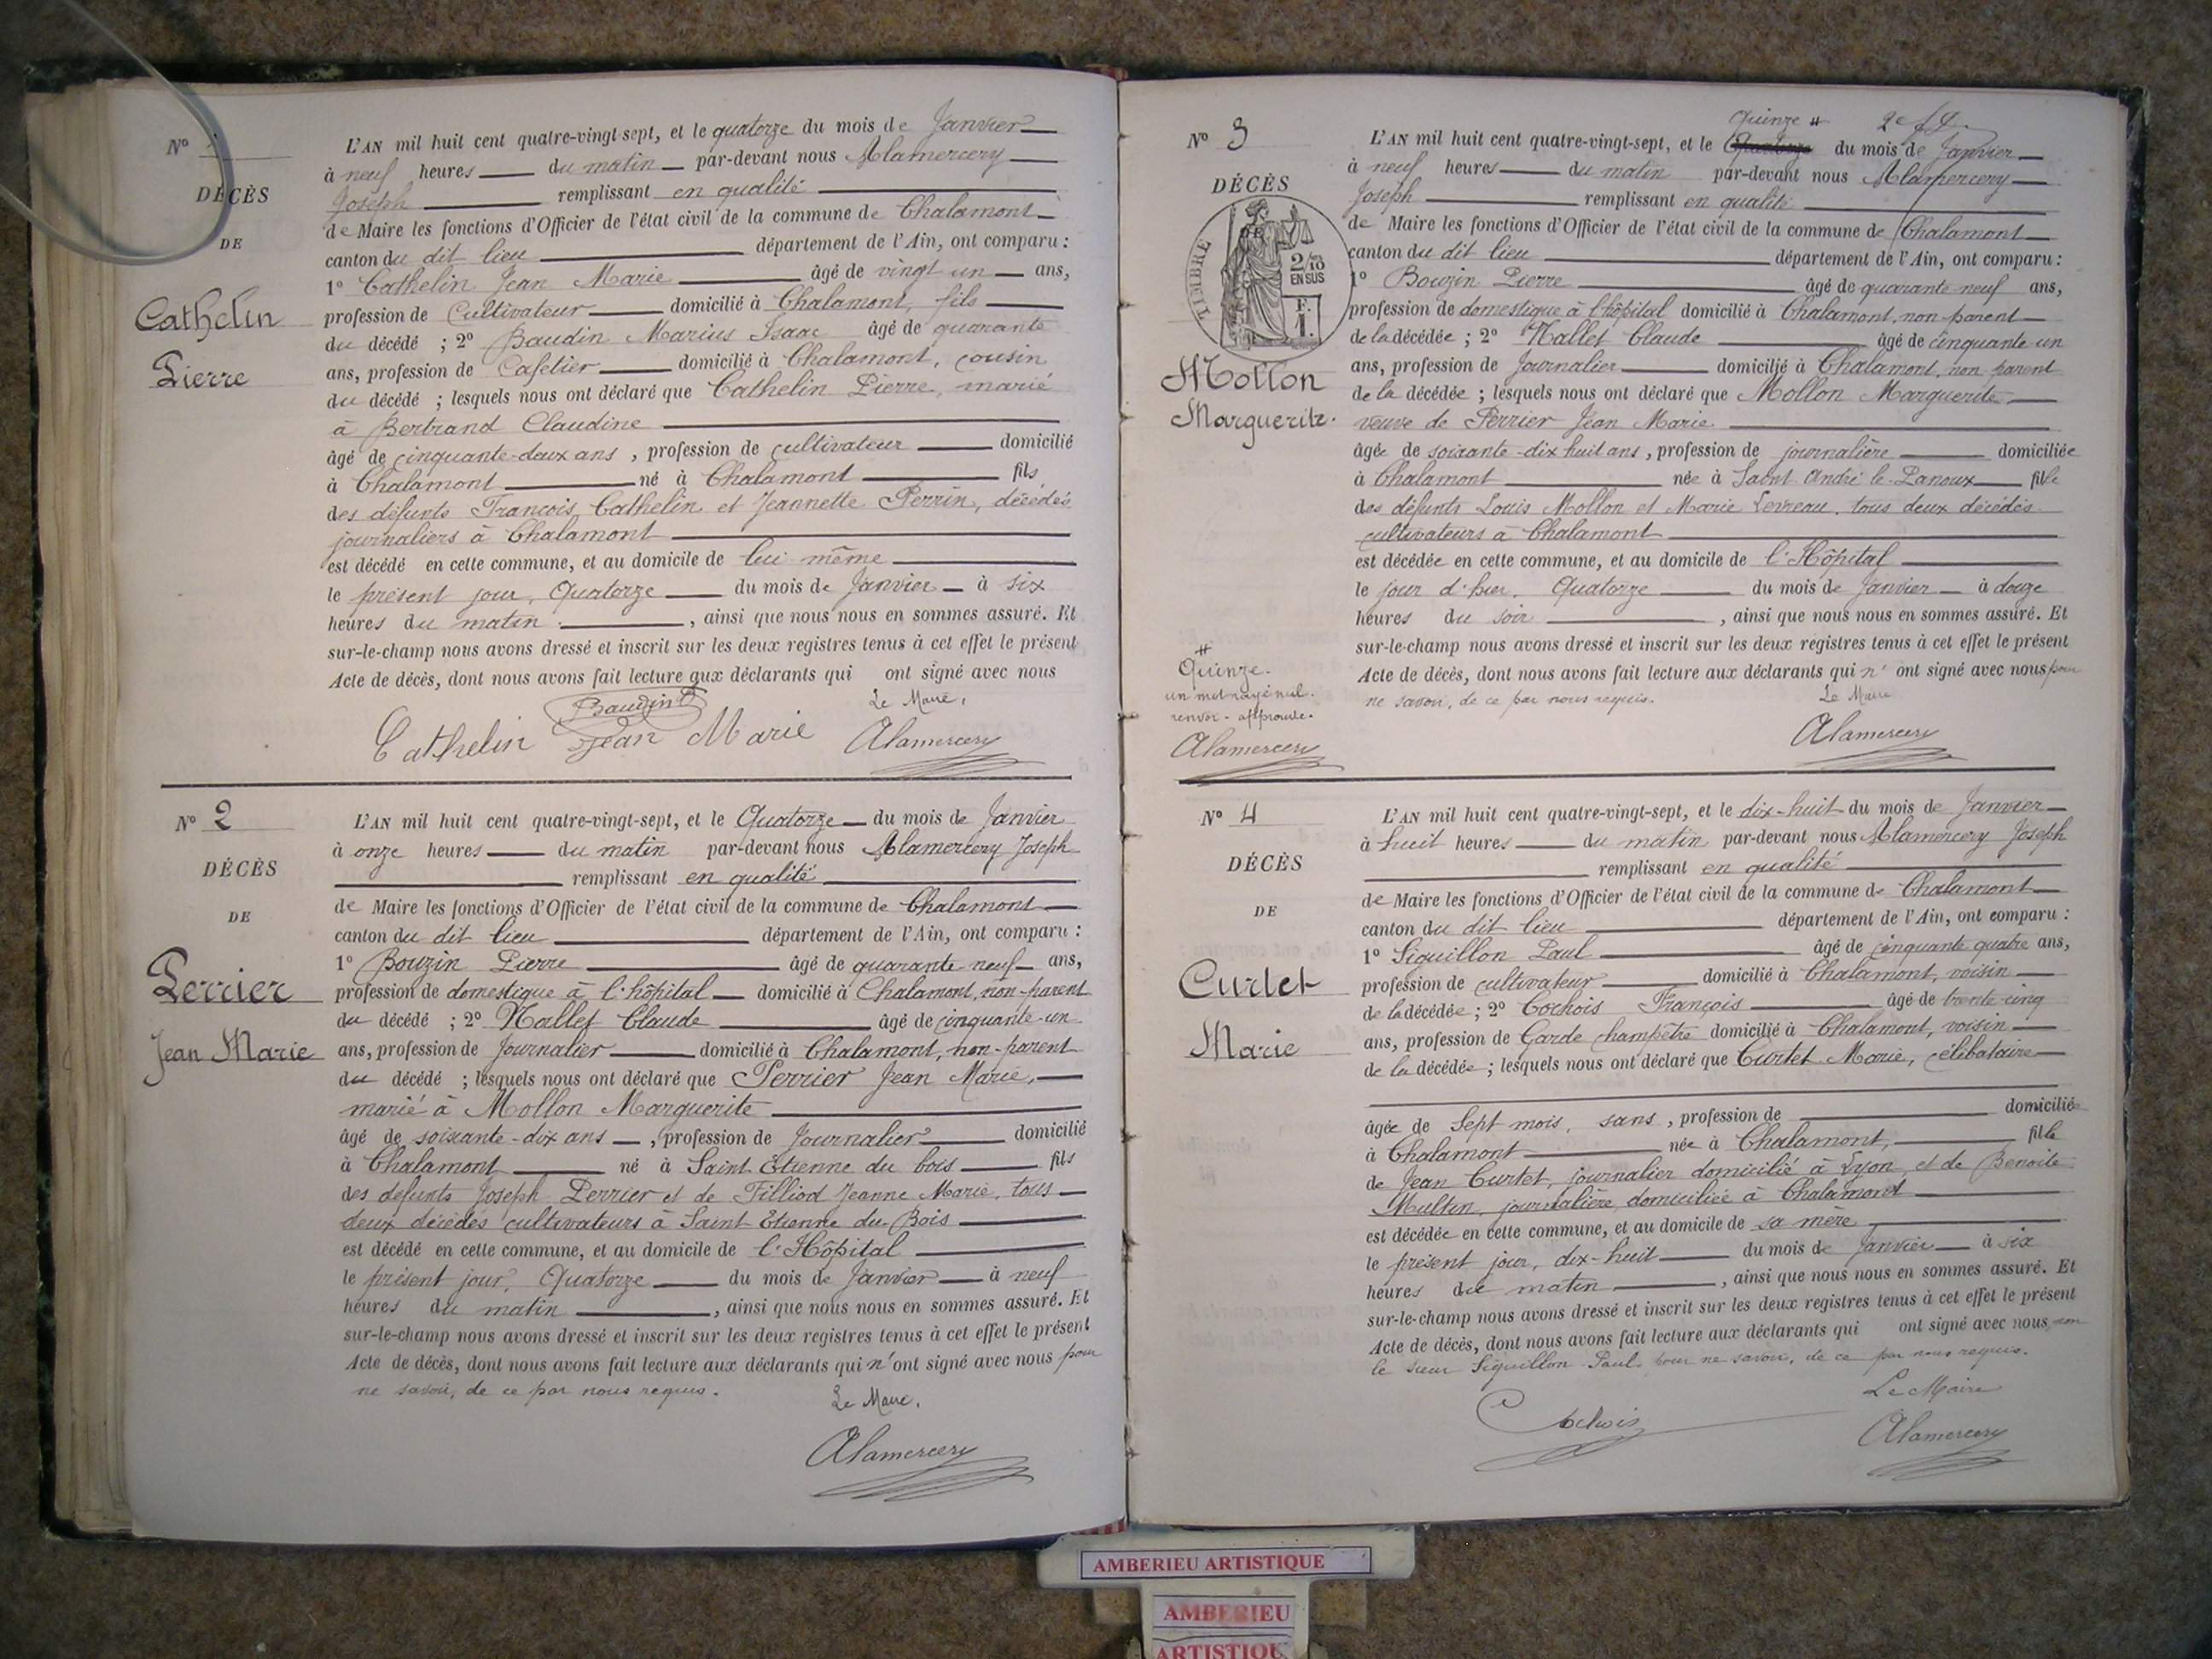 N°
DÉCÈS
DE
Cathelin
Pierre
L'AN mil huit cent quatre-vingt-sept, et le quatorze du mois de Janvier
à neuf heures du matin par-devant nous Alamercery
Joseph remplissant en qualité
de Maire les fonctions d'Officier de l'état civil de la commune de Chalamont
canton du dit lieu département de l'Ain, ont comparu :
1° Cathelin Jean Marie âgé de vingt un ans,
profession de Cultivateur domicilié à Chalamont, fils
du décédé ; 2° Baudin Marius Isaac âgé de quarante
ans, profession de Cafetier domicilié à Chalamont, cousin
du décédé ; lesquels nous ont déclaré que Cathelin Pierre, marié
à Bertrand Claudine
âgé de cinquante-deux ans, profession de cultivateur domicilié
à Chalamont né à Chalamont fils
des défunts François Cathelin et Jeannette Perrin, décédés
journaliers à Chalamont
est décédé en cette commune, et au domicile de lui même
le présent jour, Quatorze du mois de Janvier à six
heures du matin, ainsi que nous nous en sommes assuré. Et
sur-le-champ nous avons dressé et inscrit sur les deux registres tenus à cet effet le présent
Acte de décès, dont nous avons fait lecture aux déclarants qui ont signé avec nous
Le Maire,
Baudin
Cathelin Jean Marie Alamercery
N° 2
DÉCÈS
DE
Perrier
Jean Marie
L'AN mil huit cent quatre-vingt-sept, et le Quatorze du mois de Janvier
à onze heures du matin par-devant nous Alamercery Joseph
remplissant en qualité
de Maire les fonctions d'Officier de l'état civil de la commune de Chalamont
canton du dit lieu département de l'Ain, ont comparu :
1° Bouzin Pierre âgé de quarante-neuf ans,
profession de domestique à l'hôpital domicilié à Chalamont, non-parent
du décédé ; 2° Mallet Claude âgé de cinquante-un
ans, profession de Journalier domicilié à Chalamont, non-parent
du décédé ; lesquels nous ont déclaré que Perrier Jean Marie,
marié à Mollon Marguerite
âgé de soixante-dix ans, profession de Journalier domicilié
à Chalamont né à Saint Etienne du bois fils
des défunts Joseph Perrier et de Filliod Jeanne Marie, tous
deux décédés cultivateurs à Saint Etienne du Bois
est décédé en cette commune, et au domicile de l'Hôpital
le présent jour, Quatorze du mois de Janvier à neuf
heures du matin, ainsi que nous nous en sommes assuré. Et
sur-le-champ nous avons dressé et inscrit sur les deux registres tenus à cet effet le présent
Acte de décès, dont nous avons fait lecture aux déclarants qui n'ont signé avec nous pour
ne savoir, de ce par nous requis.
Le Maire,
Alamercery
N° 3
DÉCÈS
DE
TIMBRE
2/10
EN SUS
F.
1.
Mollon
Marguerite.
Quinze #
L'AN mil huit cent quatre-vingt-sept, et le du mois de Janvier
à neuf heures du matin par-devant nous Alamercery
Joseph remplissant en qualité
de Maire les fonctions d'Officier de l'état civil de la commune de Chalamont
canton du dit lieu département de l'Ain, ont comparu :
1° Bouzin Pierre âgé de quarante neuf ans,
profession de domestique à l'hôpital domicilié à Chalamont, non parent
de la décédée ; 2° Mallet Claude âgé de cinquante-un
ans, profession de Journalier domicilié à Chalamont, non parent
de la décédée ; lesquels nous ont déclaré que Mollon Marguerite
veuve de Perrier Jean Marie
âgée de soixante-dix huit ans, profession de journalière domiciliée
à Chalamont née à Saint André le Panoux fille
des défunts Louis Mollon et Marie Levreau, tous deux décédés
cultivateurs à Chalamont
est décédée en cette commune, et au domicile de l'Hôpital
le jour d'hier, Quatorze du mois de Janvier à douze
heures du soir, ainsi que nous nous en sommes assuré. Et
sur-le-champ nous avons dressé et inscrit sur les deux registres tenus à cet effet le présent
Acte de décès, dont nous avons fait lecture aux déclarants qui n'ont signé avec nous pour
ne savoir, de ce par nous requis.
Le Maire
Alamercery
#
Quinze.
un mot rayé nul.
renvoi approuvé.
Alamercery
N° 4
DÉCÈS
DE
Curtet
Marie
L'AN mil huit cent quatre-vingt-sept, et le dix-huit du mois de Janvier
à huit heures du matin par-devant nous Alamercery Joseph
remplissant en qualité
de Maire les fonctions d'Officier de l'état civil de la commune de Chalamont
canton du dit lieu département de l'Ain, ont comparu :
1° Siguillon Paul âgé de cinquante quatre ans,
profession de cultivateur domicilié à Chalamont, voisin
de la décédée ; 2° Cochois François âgé de trente-cinq
ans, profession de Garde champêtre domicilié à Chalamont, voisin
de la décédée ; lesquels nous ont déclaré que Curtet Marie, célibataire
âgée de Sept mois, sans, profession de domiciliée
à Chalamont née à Chalamont, fille
de Jean Curtet, journalier domicilié à Lyon, et de Benoite
Multin, journalière, domiciliée à Chalamont
est décédée en cette commune, et au domicile de sa mère
le présent jour, dix-huit du mois de Janvier à six
heures du matin, ainsi que nous nous en sommes assuré. Et
sur-le-champ nous avons dressé et inscrit sur les deux registres tenus à cet effet le présent
Acte de décès, dont nous avons fait lecture aux déclarants qui ont signé avec nous, non
le sieur Siguillon Paul, pour ne savoir, de ce par nous requis.
Le Maire
Cochois
Alamercery
AMBERIEU ARTISTIQUE
AMBERIEU
ARTISTIQUE